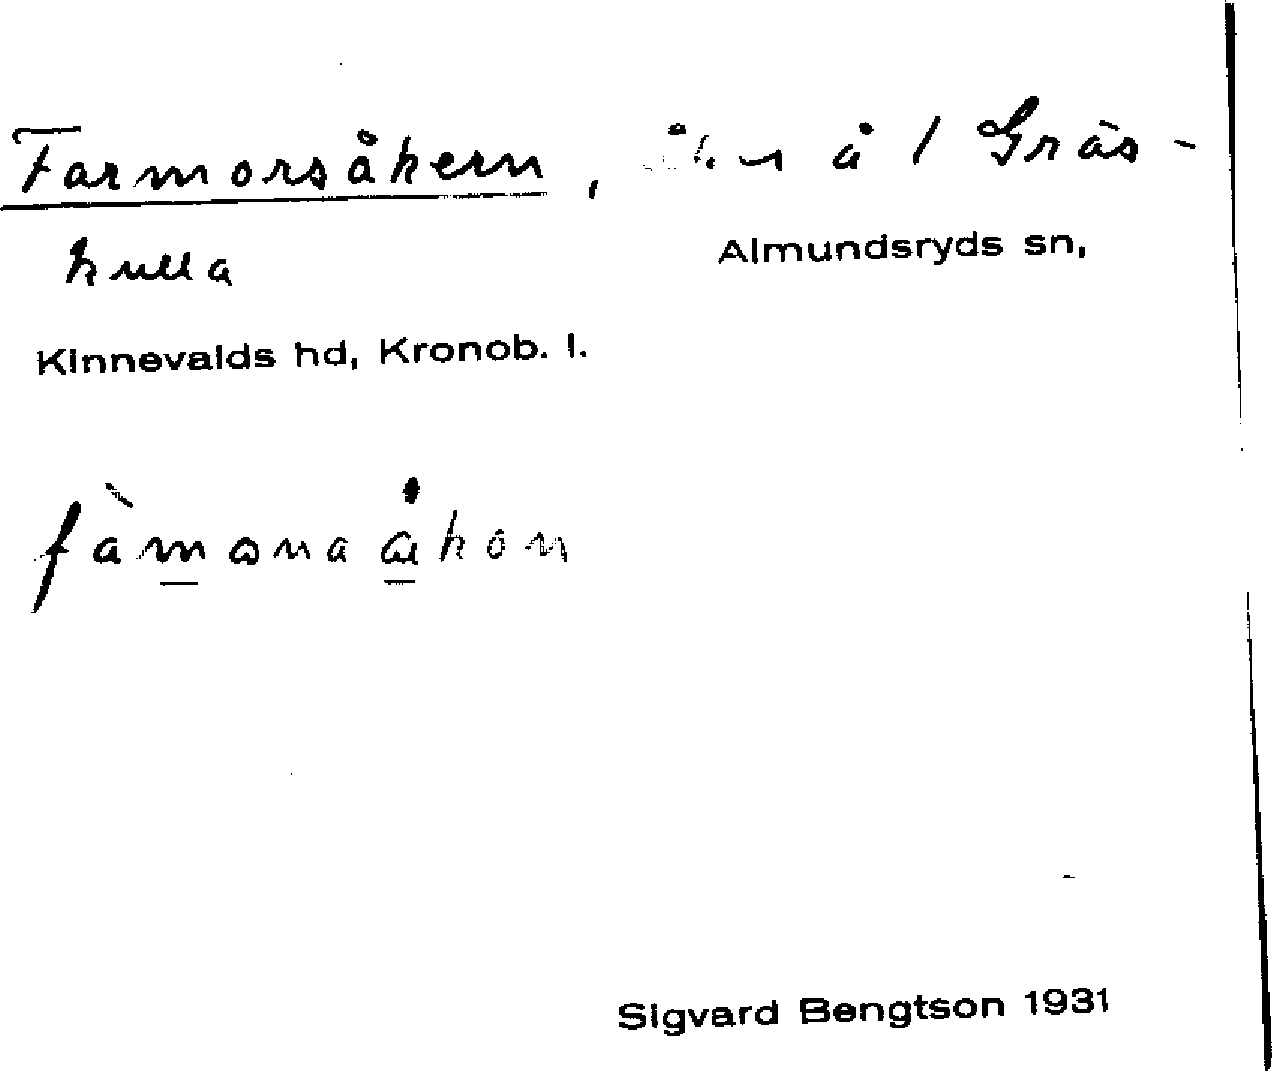 Farmorsåkern, åker å 1 Gräs-
hulla
Almundsryds sn,
Kinnevalds hd, Kronob. l.
Sigvard Bengtson 1931